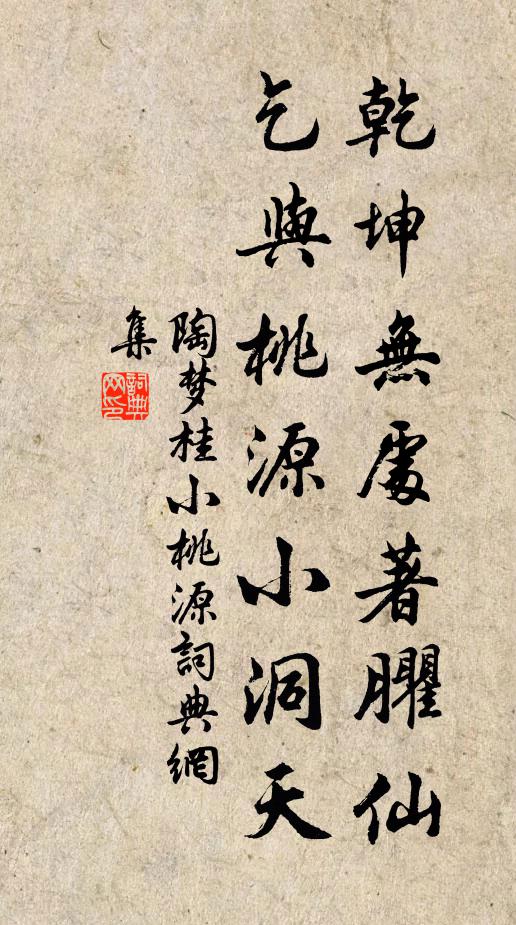 乾坤無處著臞仙
乞與桃源小洞天
陶梦桂小桃源詞典網
集
詞典
网印